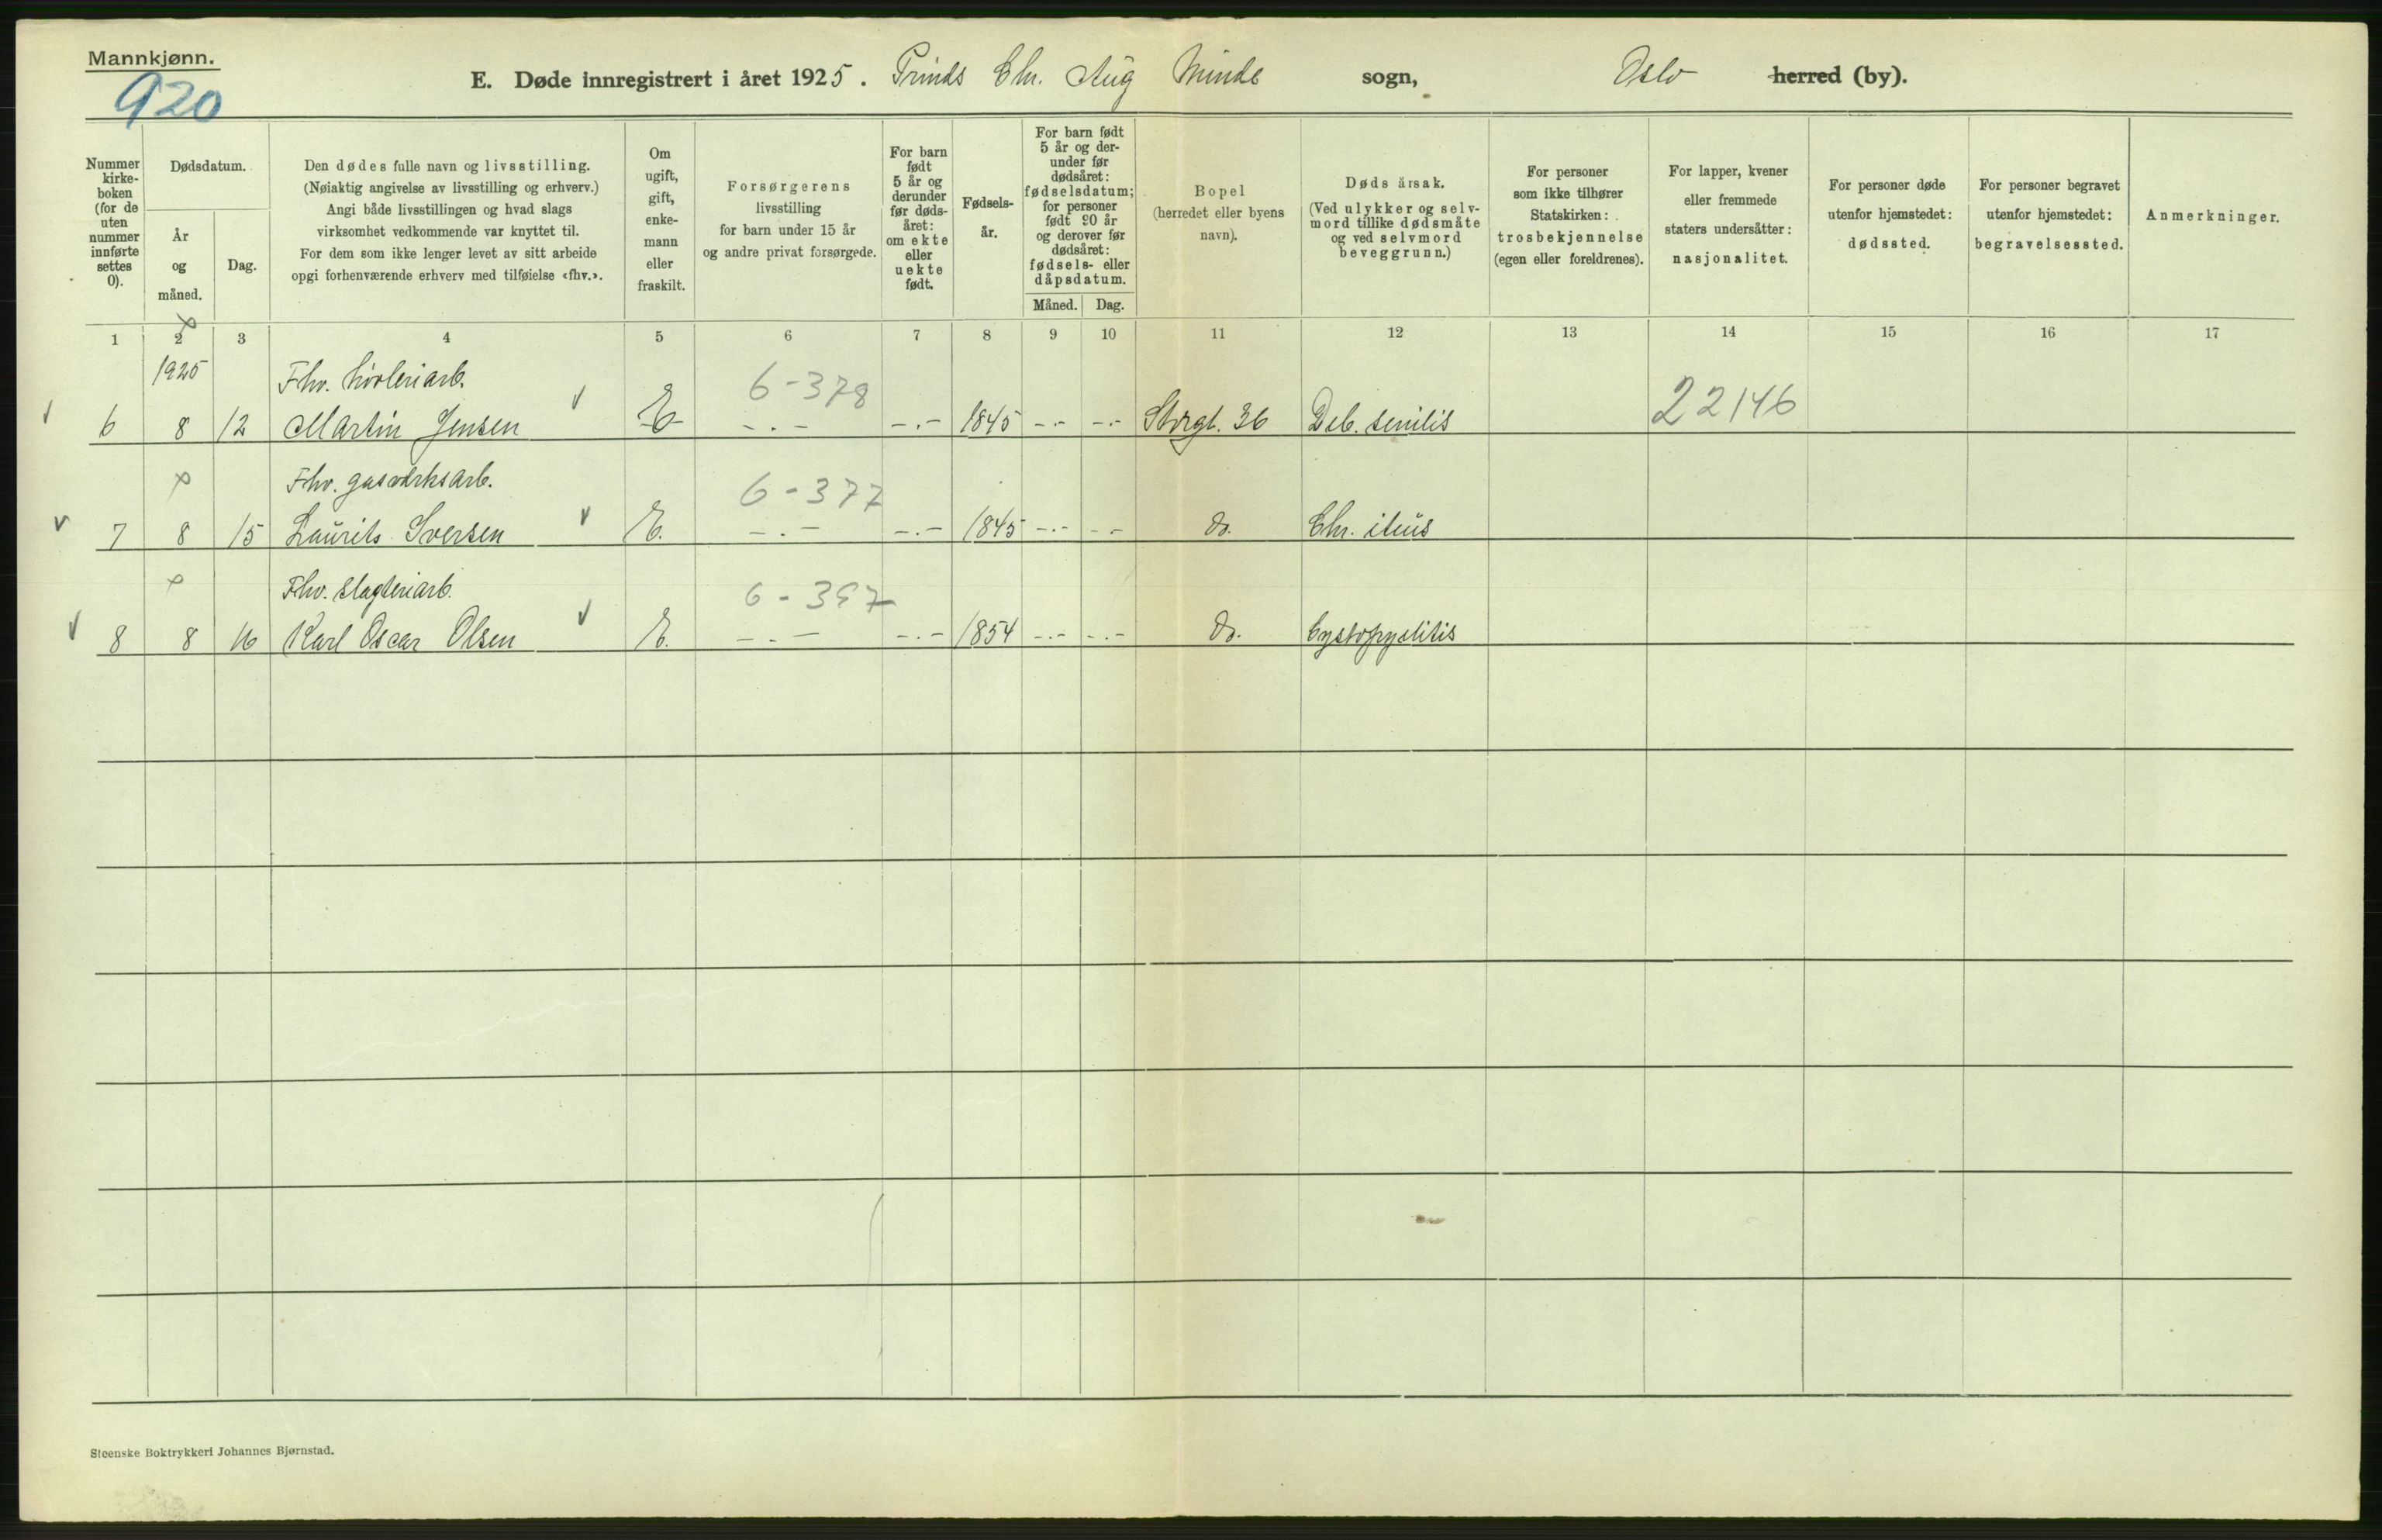 Mannkjønn.
920
E. Døde innregistrert i året 1925. Prinds Chr. Aug Minde sogn, Oslo herred (by).
Nummer
kirke-
boken
(for de
uten
nummer
innførte
settes
0).
Dødsdatum.
År
og
måned.
Dag.
Den dødes fulle navn og livsstilling.
(Nøiaktig angivelse av livsstilling og erhverv.)
Angi både livsstillingen og hvad slags
virksomhet vedkommende var knyttet til.
For dem som ikke lenger levet av sitt arbeide
opgi forhenværende erhverv med tilføielse «fhv.».
Om
ugift,
gift,
enke-
mann
eller
fraskilt.
Forsørgerens
livsstilling
for barn under 15 år
og andre privat forsørgede.
For barn
født
5 år og
derunder
før døds-
året:
om ekte
eller
uekte
født.
Fødsels-
år.
For barn født
5 år og der-
under før
dødsåret:
fødselsdatum;
for personer
født 20 år
og derover før
dødsåret:
fødsels- eller
dåpsdatum.
Måned. Dag.
Bopel
(herredet eller byens
navn).
Døds årsak.
(Ved ulykker og selv-
mord tillike dødsmåte
og ved selvmord
beveggrunn.)
For personer
som ikke tilhører
Statskirken:
trosbekjennelse
(egen eller foreldrenes).
For lapper, kvener
eller fremmede
staters undersåtter:
nasjonalitet.
For personer døde
utenfor hjemstedet:
dødssted.
For personer begravet
utenfor hjemstedet:
begravelsessted.
Anmerkninger.
1 2 3 4 5 6 7 8 9 10 11 12 13 14 15 16 17
1925 Fhv. høvleriarb. 6-378
6 8 12 Martin Jensen E -.- -.- 1845 -.- -.- Storgt. 36 Deb. senilis 22146
Fhv. gasverksarb. 6-377
7 8 15 Laurits Iversen E. -.- -.- 1845 -.- -.- do. Chr. ileus
Fhv. slagteriarb. 6-397
8 8 16 Karl Oscar Olsen E. -.- -.- 1854 -.- -.- do. Cystopyelitis
Steenske Boktrykkeri Johannes Bjørnstad.